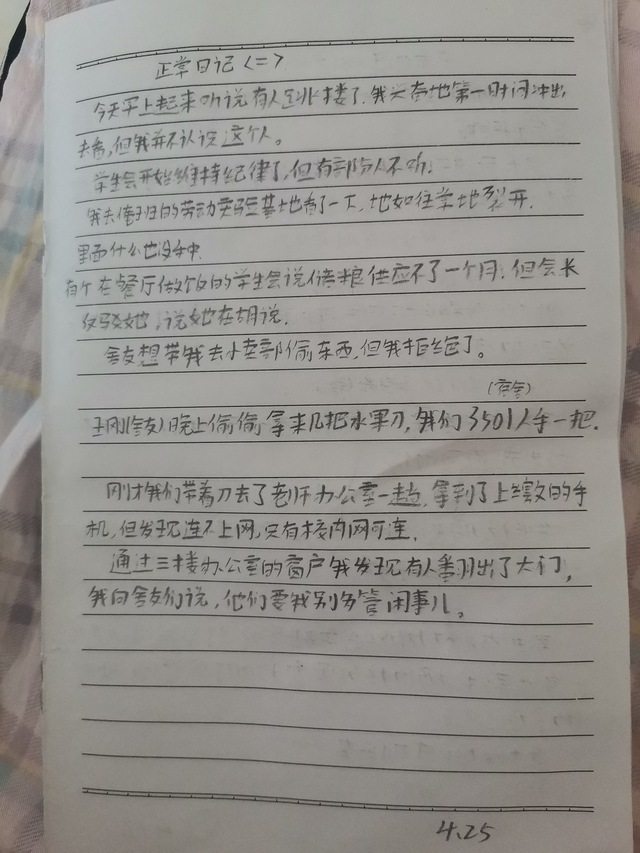 正常日记<二>
今天早上起来听说有人跳楼了.我兴奋地第一时间冲出
去看,但我并不认识这个人。
学生会开始维持纪律了,但有部份人不听.
我去俺班的劳动实验基地看了一下,地如往常地裂开.
里面什么也没种.
有个在餐厅做饭的学生会说储粮供应不了一个月.但会长
反驳她,说她在胡说.
舍友想带我去小卖部偷东西,但我拒绝了。
(宿舍)
王刚(舍友)晚上偷偷拿来几把水果刀,我们3501人手一把.
刚才我们带着刀去了老师办公室一趟,拿到了上缴的手
机,但发现连不上网,只有校内网可连.
通过三楼办公室的窗户我发现有人翻出了大门,
我向舍友们说,他们要我别多管闲事儿。
4.25